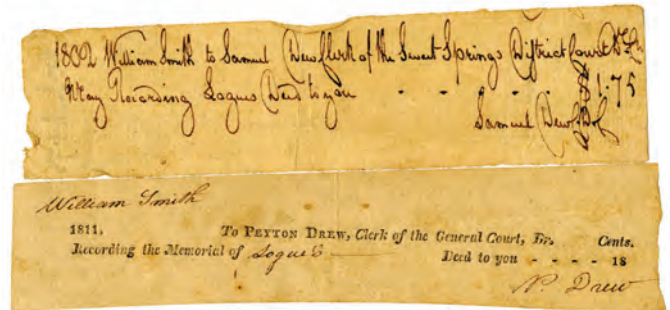 1802 William Smith to Samuel Dew Clerk of the Sweet Springs District Court Dr
May Recording Logues Deed to you - - - - 1.75
Samuel Dew
William Smith
1811, To PEYTON DREW, Clerk of the General Court, Dr. Cents.
Recording the Memorial of Logue's Deed to you - - - - 18
P. Drew